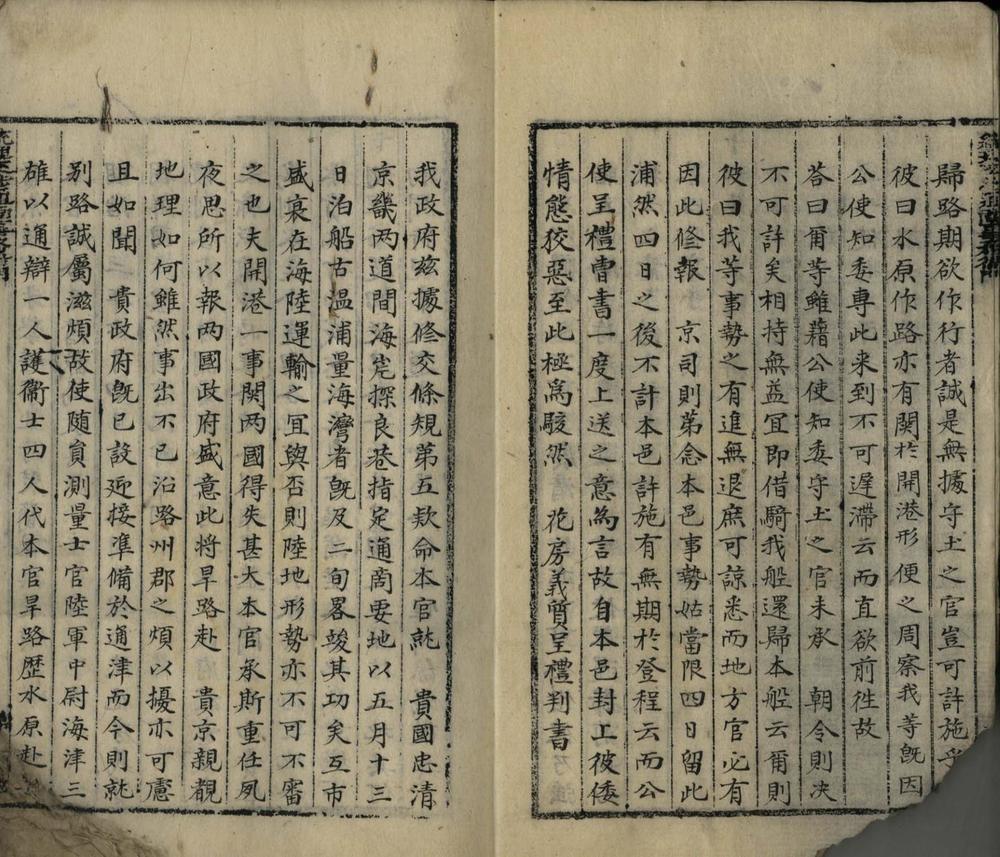 歸路期欲作行者誠是無據守土之官豈可許施乎
彼曰水原作路亦有関於開港形便之周察我等旣因
公使知委專此来到不可遅滯云而直欲前徃故
荅曰爾等雖藉公使知委守土之官未承 朝令則决
不可許矣相持無益冝即借騎我船還歸本船云爾則
彼曰我等事勢之有進無退庶可諒悉而地方官必有
因此修報 京司則弟念本邑事勢姑當限四日留此
浦然四日之後不計本邑許施有無期於登程云而公
使呈禮曺書一度上送之意為言故自本邑封上彼倭
情態狡惡至此極爲駭然 花房義質呈禮判書
我政府玆據修交條規第五欵命本官就 貴國忠清
京畿两道間海岸探良巷指定通啇要地以五月十三
日泊船古温浦量海灣者旣及二旬畧竣其功矣互市
盛衰在海陸運輸之冝與否則陸地形勢亦不可不審
之也夫開港一事関两國得失甚大本官承斯重任夙
夜思所以報两國政府盛意此将旱路赴 貴京親覩
地理如何雖然事出不已沿路州郡之煩以擾亦可慮
且如聞 貴政府旣已設迎接準備於通津而今則就
别路誠屬滋煩故使随負測量士官陸軍中尉海津三
雄以通辯一人護衛士四人代本官旱路歷水原赴